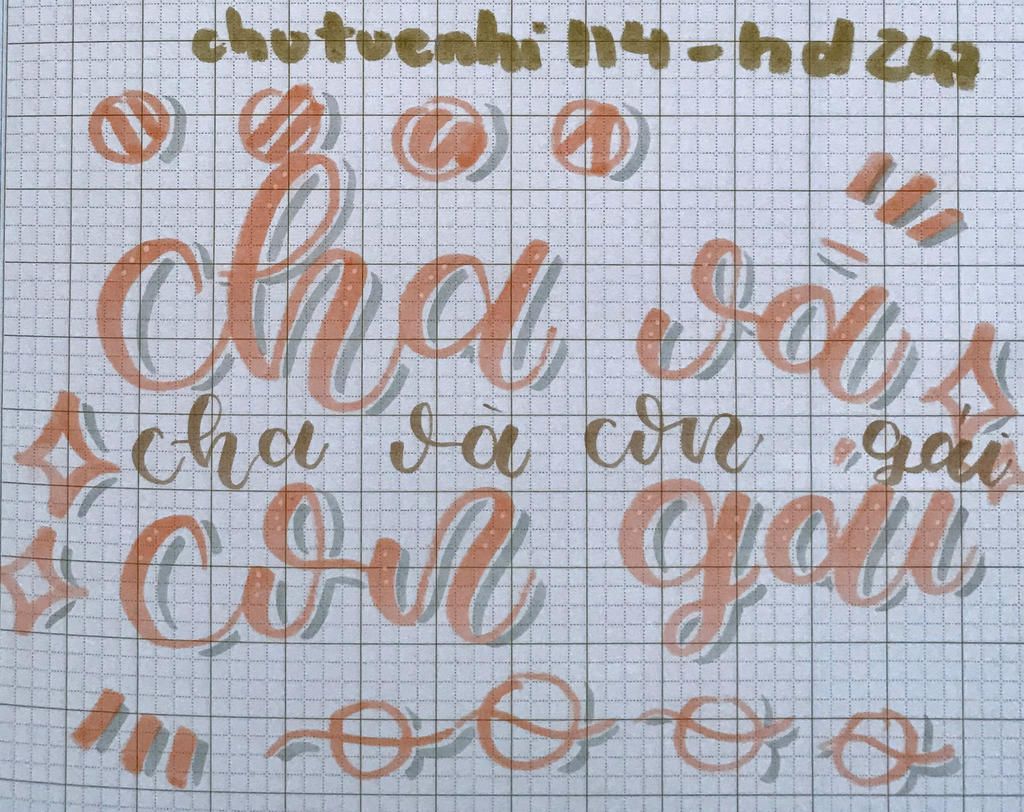 chutuenhi 114 - hd 247
cha và
cha và con gái
con gái